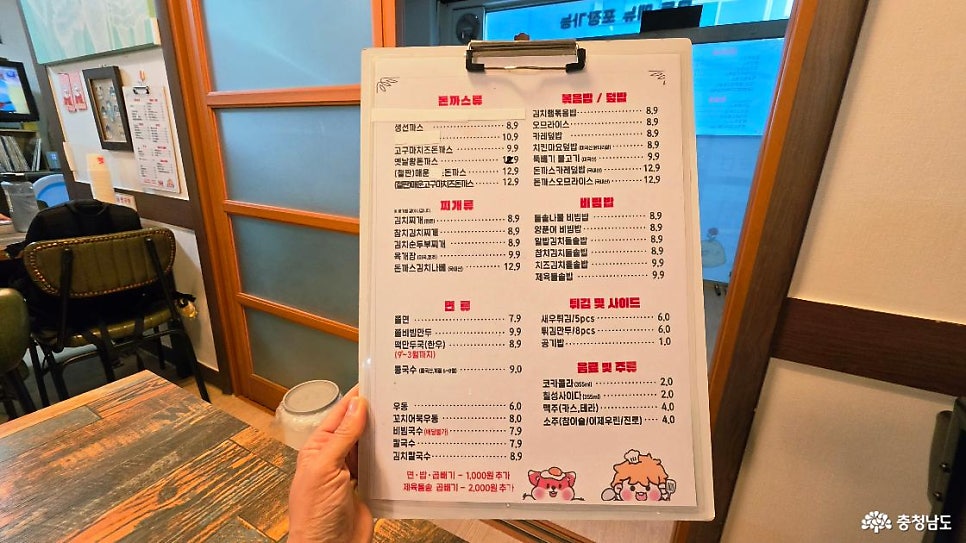 메뉴 포장가능
돈까스류
생선까스 8.9
10.9
고구마치즈돈까스 9.9
옛날왕돈까스
(철판)매운 돈까스 12.9
(철판)매운고구마치즈돈까스 12.9
찌개류
김치찌개 8.9
참치김치찌개 8.9
김치순두부찌개 8.9
육개장 9.9
돈까스김치나베 12.9
면 류
쫄면 7.9
쫄비빔만두 9.9
떡만두국(한우) 8.9
(9~3월까지)
콩국수 9.0
우동 6.0
꼬치어묵우동 8.0
비빔국수 7.9
칼국수 7.9
김치칼국수 8.9
면·밥·곱빼기 - 1,000원 추가
제육돌솥 곱빼기 - 2,000원 추가
볶음밥 / 덮밥
김치햄볶음밥 8.9
오므라이스 8.9
카레덮밥 8.9
치킨마요덮밥 8.9
뚝배기 불고기 9.9
돈까스카레덮밥 12.9
돈까스오므라이스 12.9
비빔밥
돌솥나물 비빔밥 8.9
양푼이 비빔밥 8.9
알밥김치돌솥밥 8.9
참치김치돌솥밥 8.9
치즈김치돌솥밥 9.9
제육돌솥밥 9.9
튀김 및 사이드
새우튀김/5pcs 6.0
튀김만두/8pcs 6.0
공기밥 1.0
음료 및 주류
코카콜라(355ml) 2.0
칠성사이다(355ml) 2.0
맥주(카스,테라) 4.0
소주(참이슬/이제우린/진로) 4.0
충청남도